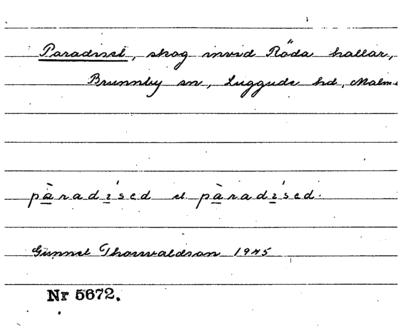 Paradiset, skog invid Röda hallar,
Brunnby sn, Luggude hd, Malm
pàradísed el pàradísed.
Gunnel Thorvaldson 1945
Nr 5672.